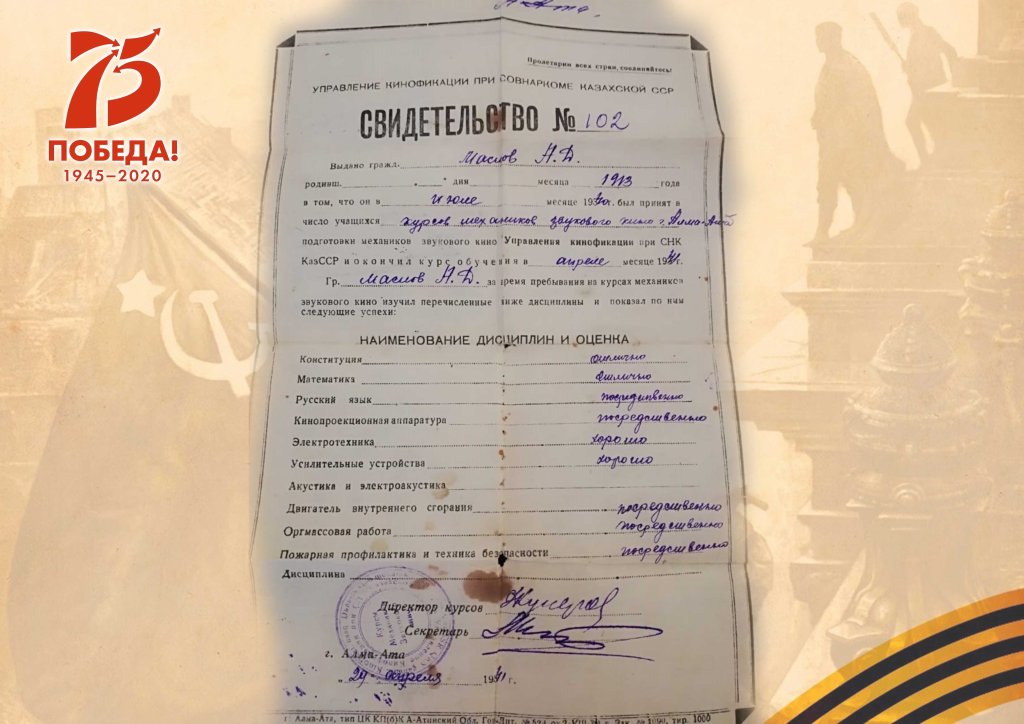 75
ПОБЕДА!
1945–2020
Пролетарии всех стран, соединяйтесь!
УПРАВЛЕНИЕ КИНОФИКАЦИИ ПРИ СОВНАРКОМЕ КАЗАХСКОЙ ССР
СВИДЕТЕЛЬСТВО № 102
Выдано гражд. Маслов А.Д.
родивш. „ “ дня месяца 1913 года
в том, что он в июле месяце 1940г. был принят в
число учащихся курсов механиков звукового кино г. Алма-Ата
подготовки механиков звукового кино Управления кинофикации при СНК
КазССР и окончил курс обучения в апреле месяце 1941г.
Гр. Маслов А.Д. за время пребывания на курсах механиков
звукового кино изучил перечисленные ниже дисциплины и показал по ним
следующие успехи:
НАИМЕНОВАНИЕ ДИСЦИПЛИН И ОЦЕНКА
Конституция отлично
Математика отлично
Русский язык посредственно
Кинопроекционная аппаратура посредственно
Электротехника хорошо
Усилительные устройства хорошо
Акустика и электроакустика
Двигатель внутреннего сгорания посредственно
Оргмассовая работа посредственно
Пожарная профилактика и техника безопасности посредственно
Дисциплина
Директор курсов
Секретарь
г. Алма-Ата
„29“ апреля 1941 г.
г. Алма-Ата, тип ЦК КП(б)К А-Атинский Обл. тир. 1000